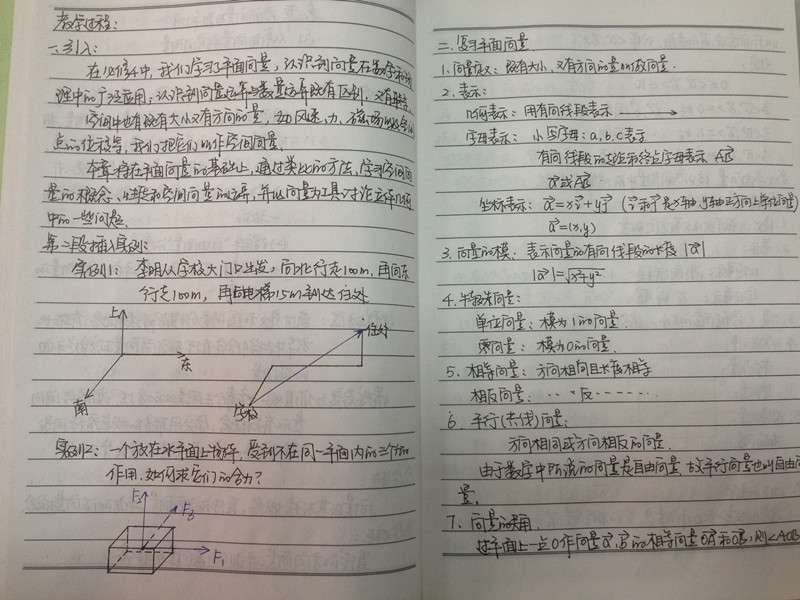 教学过程:
一.引入:
在必修4中,我们学习了平面向量,认识到向量在数学和物
理中的广泛应用;认识到向量运算与数量运算既有区别,又有联系.
空间中也有既有大小又有方向的量,如风速、力、
点的位移等,我们把它们叫作空间向量.
本章将在平面向量的基础上,通过类比的方法,学习空间向
量的概念、性质和空间向量的运算,并以向量为工具讨论立体几何
中的一些问题.
第二段插入实例:
实例1: 李明从学校大门口出发,向北行走100m,再向东
行走100m,再上电梯15m到达住处
上
东
南
住处
学校
实例2: 一个放在水平面上的,受到不在同一平面内的三个力的
作用.如何求它们的合力?
F₂
F₃
F₁
二.复习平面向量.
1.向量定义: 既有大小,又有方向的量叫做向量.
2.表示:
几何表示: 用有向线段表示
字母表示: 小写字母:a,b,c表示
有向线段的起点与终点字母表示 AB
a或AB
坐标表示: a=xi+yj (i和j是x轴,y轴正方向上单位向量)
a=(x,y)
3.向量的模: 表示向量的有向线段的长度 |a|
|a|=√x²+y²
4.特殊向量:
单位向量: 模为1的向量.
零向量: 模为0的向量.
5.相等向量: 方向相同且长度相等
相反向量: 反
6.平行(共线)向量:
方向相同或方向相反的向量.
由于数学中所说的向量是自由向量,故平行向量也叫自由向
量.
7.向量的夹角.
过平面上一点O作向量a,b的相等向量OA和OB,则∠AOB